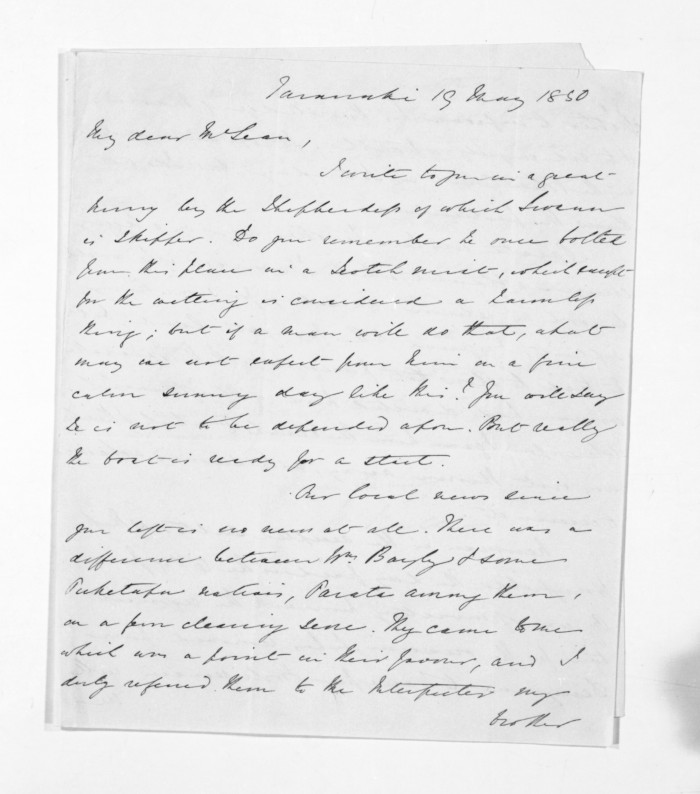 Taranaki 19 May 1850
My dear McLean,
I write to you in a great
hurry by the Shepherdess of which Swann
is Skipper. Do you remember he once bolted
from this place in a Scotch mist, which except
for the wetting is considered a harmless
thing; but if a man will do that, what
may we not expect from him on a fine
calm sunny day like this? You will say
he is not to be depended upon. But really
the boat is ready for a start.
Our local news since
you left is no news at all. There was a
difference between Wm Bayly & some
Puketapu natives, Parata among them,
on a fern clearing. They came to me
which was a point in their favour, and I
duly referred them to the Interpreter my
brother